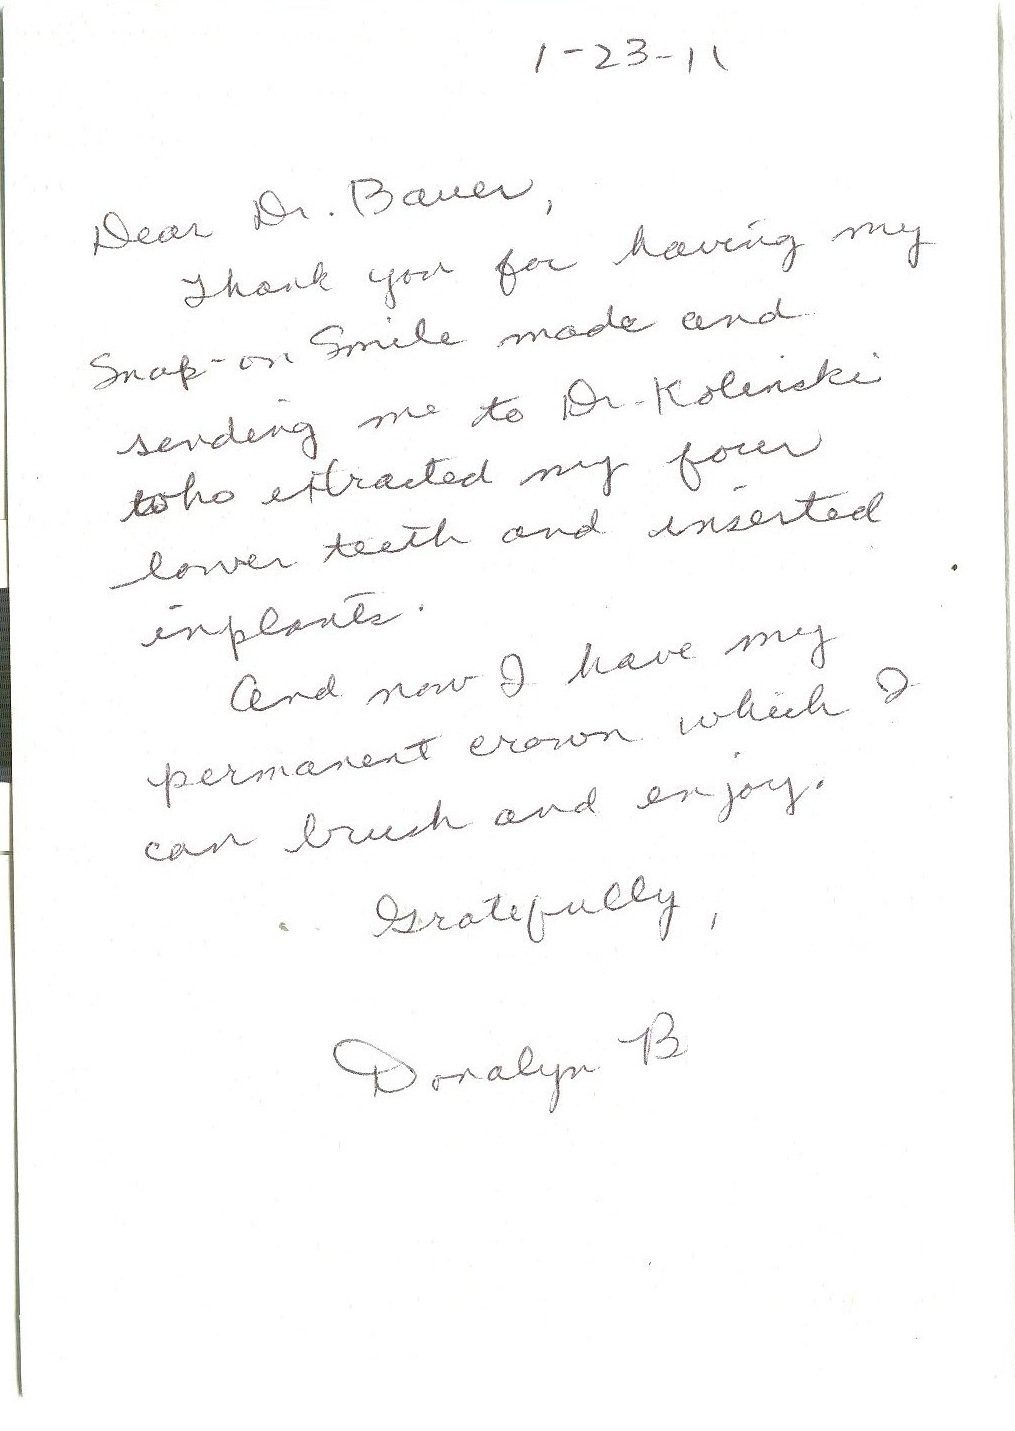 1-23-11
Dear Dr. Bauer,
Thank you for having my
Snap-on Smile made and
sending me to Dr. Kolinski
who extracted my four
lower teeth and inserted
inplants.
And now I have my
permanent crown which I
can brush and enjoy.
Gratefully,
Donalyn B